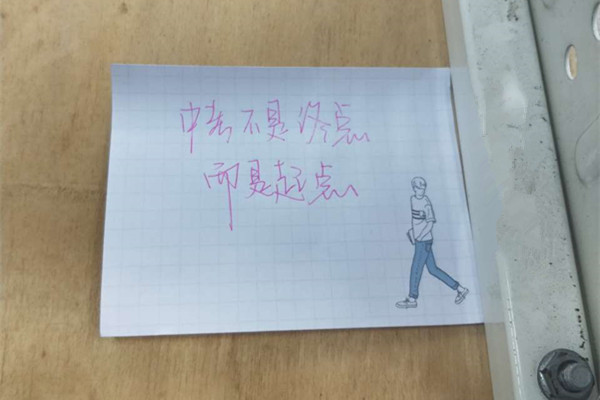 中考不是终点
而是起点